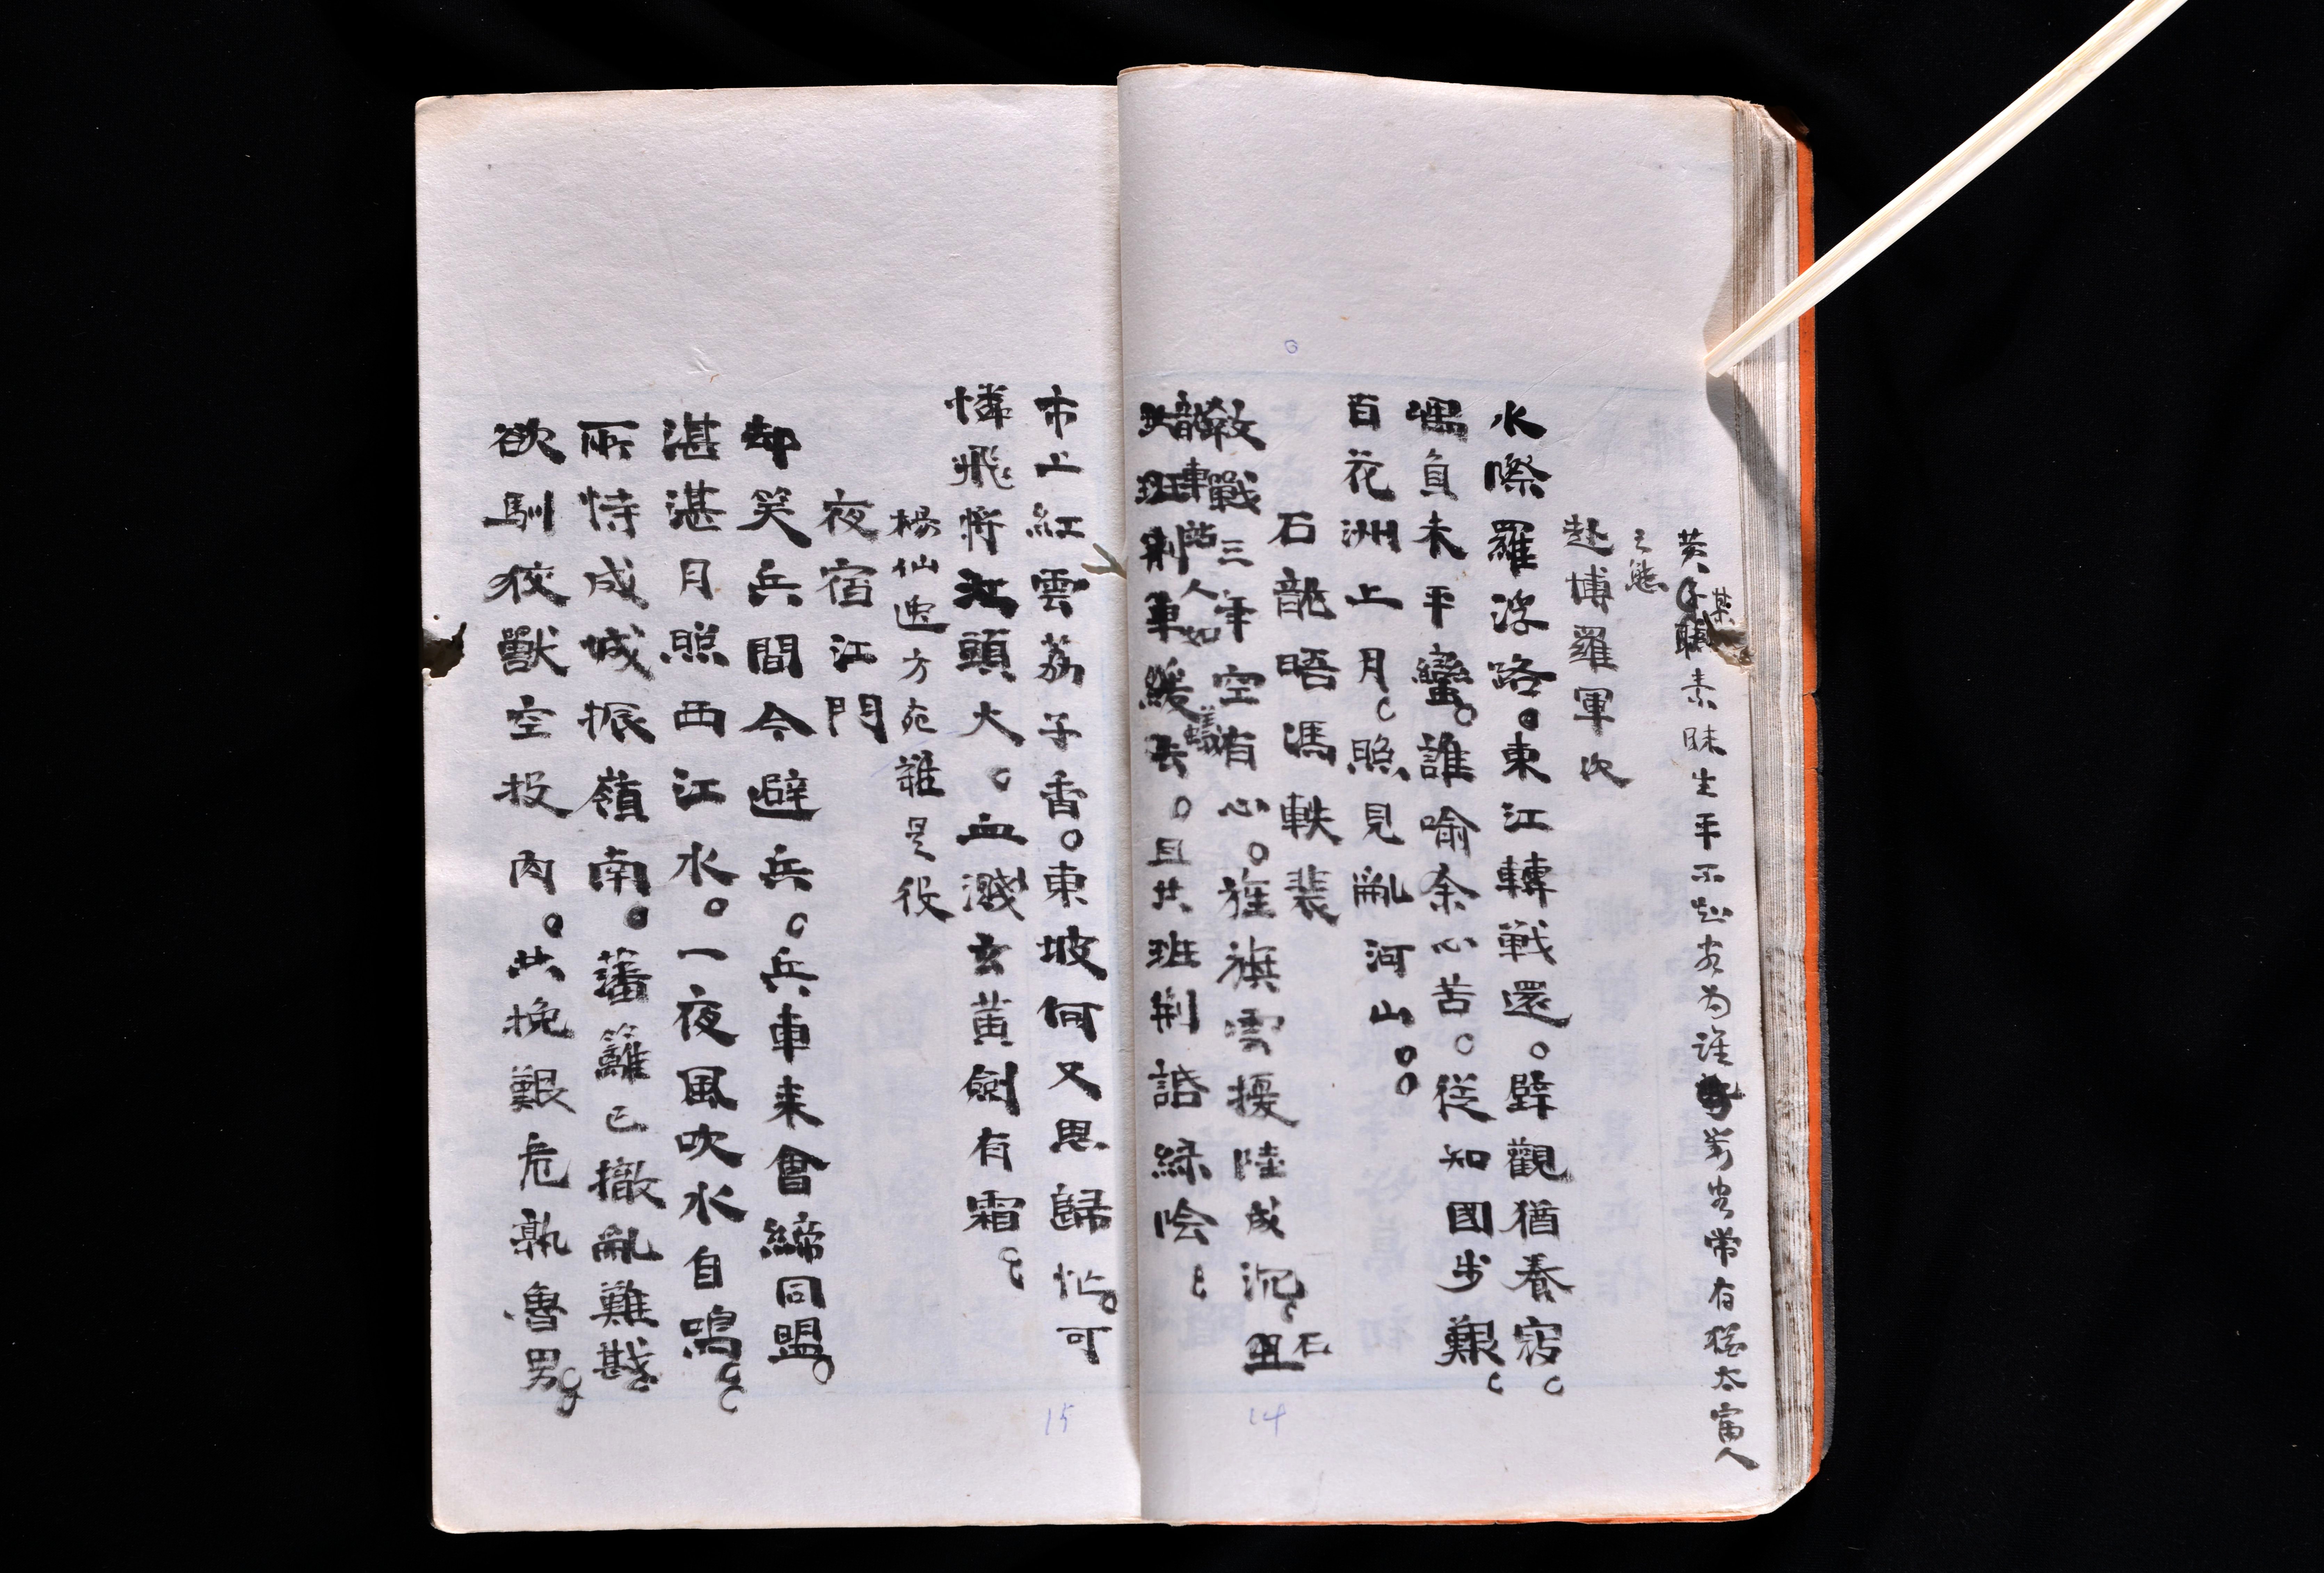 黃子職素昧生平不知客為誰客常有猶太富人
之態
赴博羅軍次
水際羅浮路。東江轉戰還。壁觀猶養寇。
嵎負未平蠻。誰喻余心苦。從知國步艱。
百花洲上月。照見亂河山。
石龍晤馮軼裴
教戰三年空有心。旌旗雲擾陸成沉。石
龍車站人如蟻
共班荆草緩去。且共班荆話綠陰。
14
市上紅雲荔子香。東坡何又思歸忙。可
憐飛將江頭火。血濺玄黃劍有霜。
楊仙逸方宛誰是役
夜宿江門
却笑兵間今避兵。兵車来會締同盟。
湛湛月照西江水。一夜風吹水自鳴。
所恃成城振嶺南。藩籬已撤亂難戡。
欲馴狡獸空投肉。共挽艱危孰魯男。
15